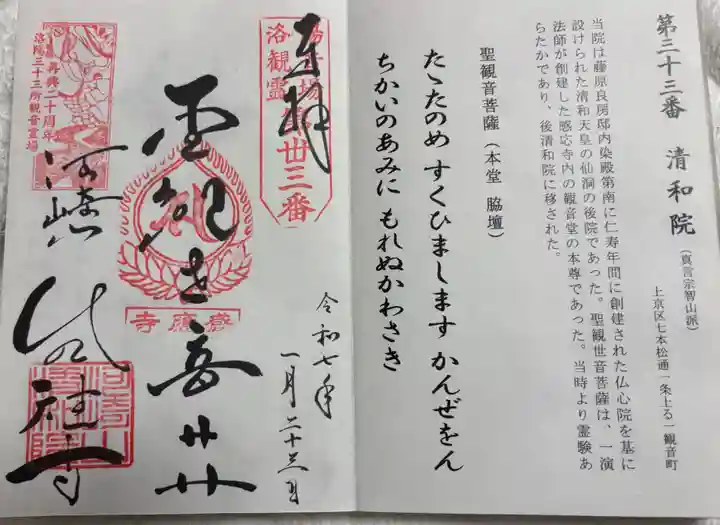 第三十三番 清和院
(真言宗智山派)
上京区七本松通一条上る一観音町
当院は藤原良房邸内染殿第南に仁寿年間に創建された仏心院を基に
設けられた清和天皇の仙洞の後院であった。聖観世音菩薩は、一演
法師が創建した感応寺内の観音堂の本尊であった。当時より霊験あ
らたかであり、後清和院に移された。
聖観音菩薩(本堂 脇壇)
たゝたのめ すくひまします かんぜをん
ちかいのあみに もれぬかわさき
奉拝
洛陽
観音霊場
卅三番
令和七年
一月二十三日
感應寺
再興二十周年
洛陽三十三所観音霊場
河崎